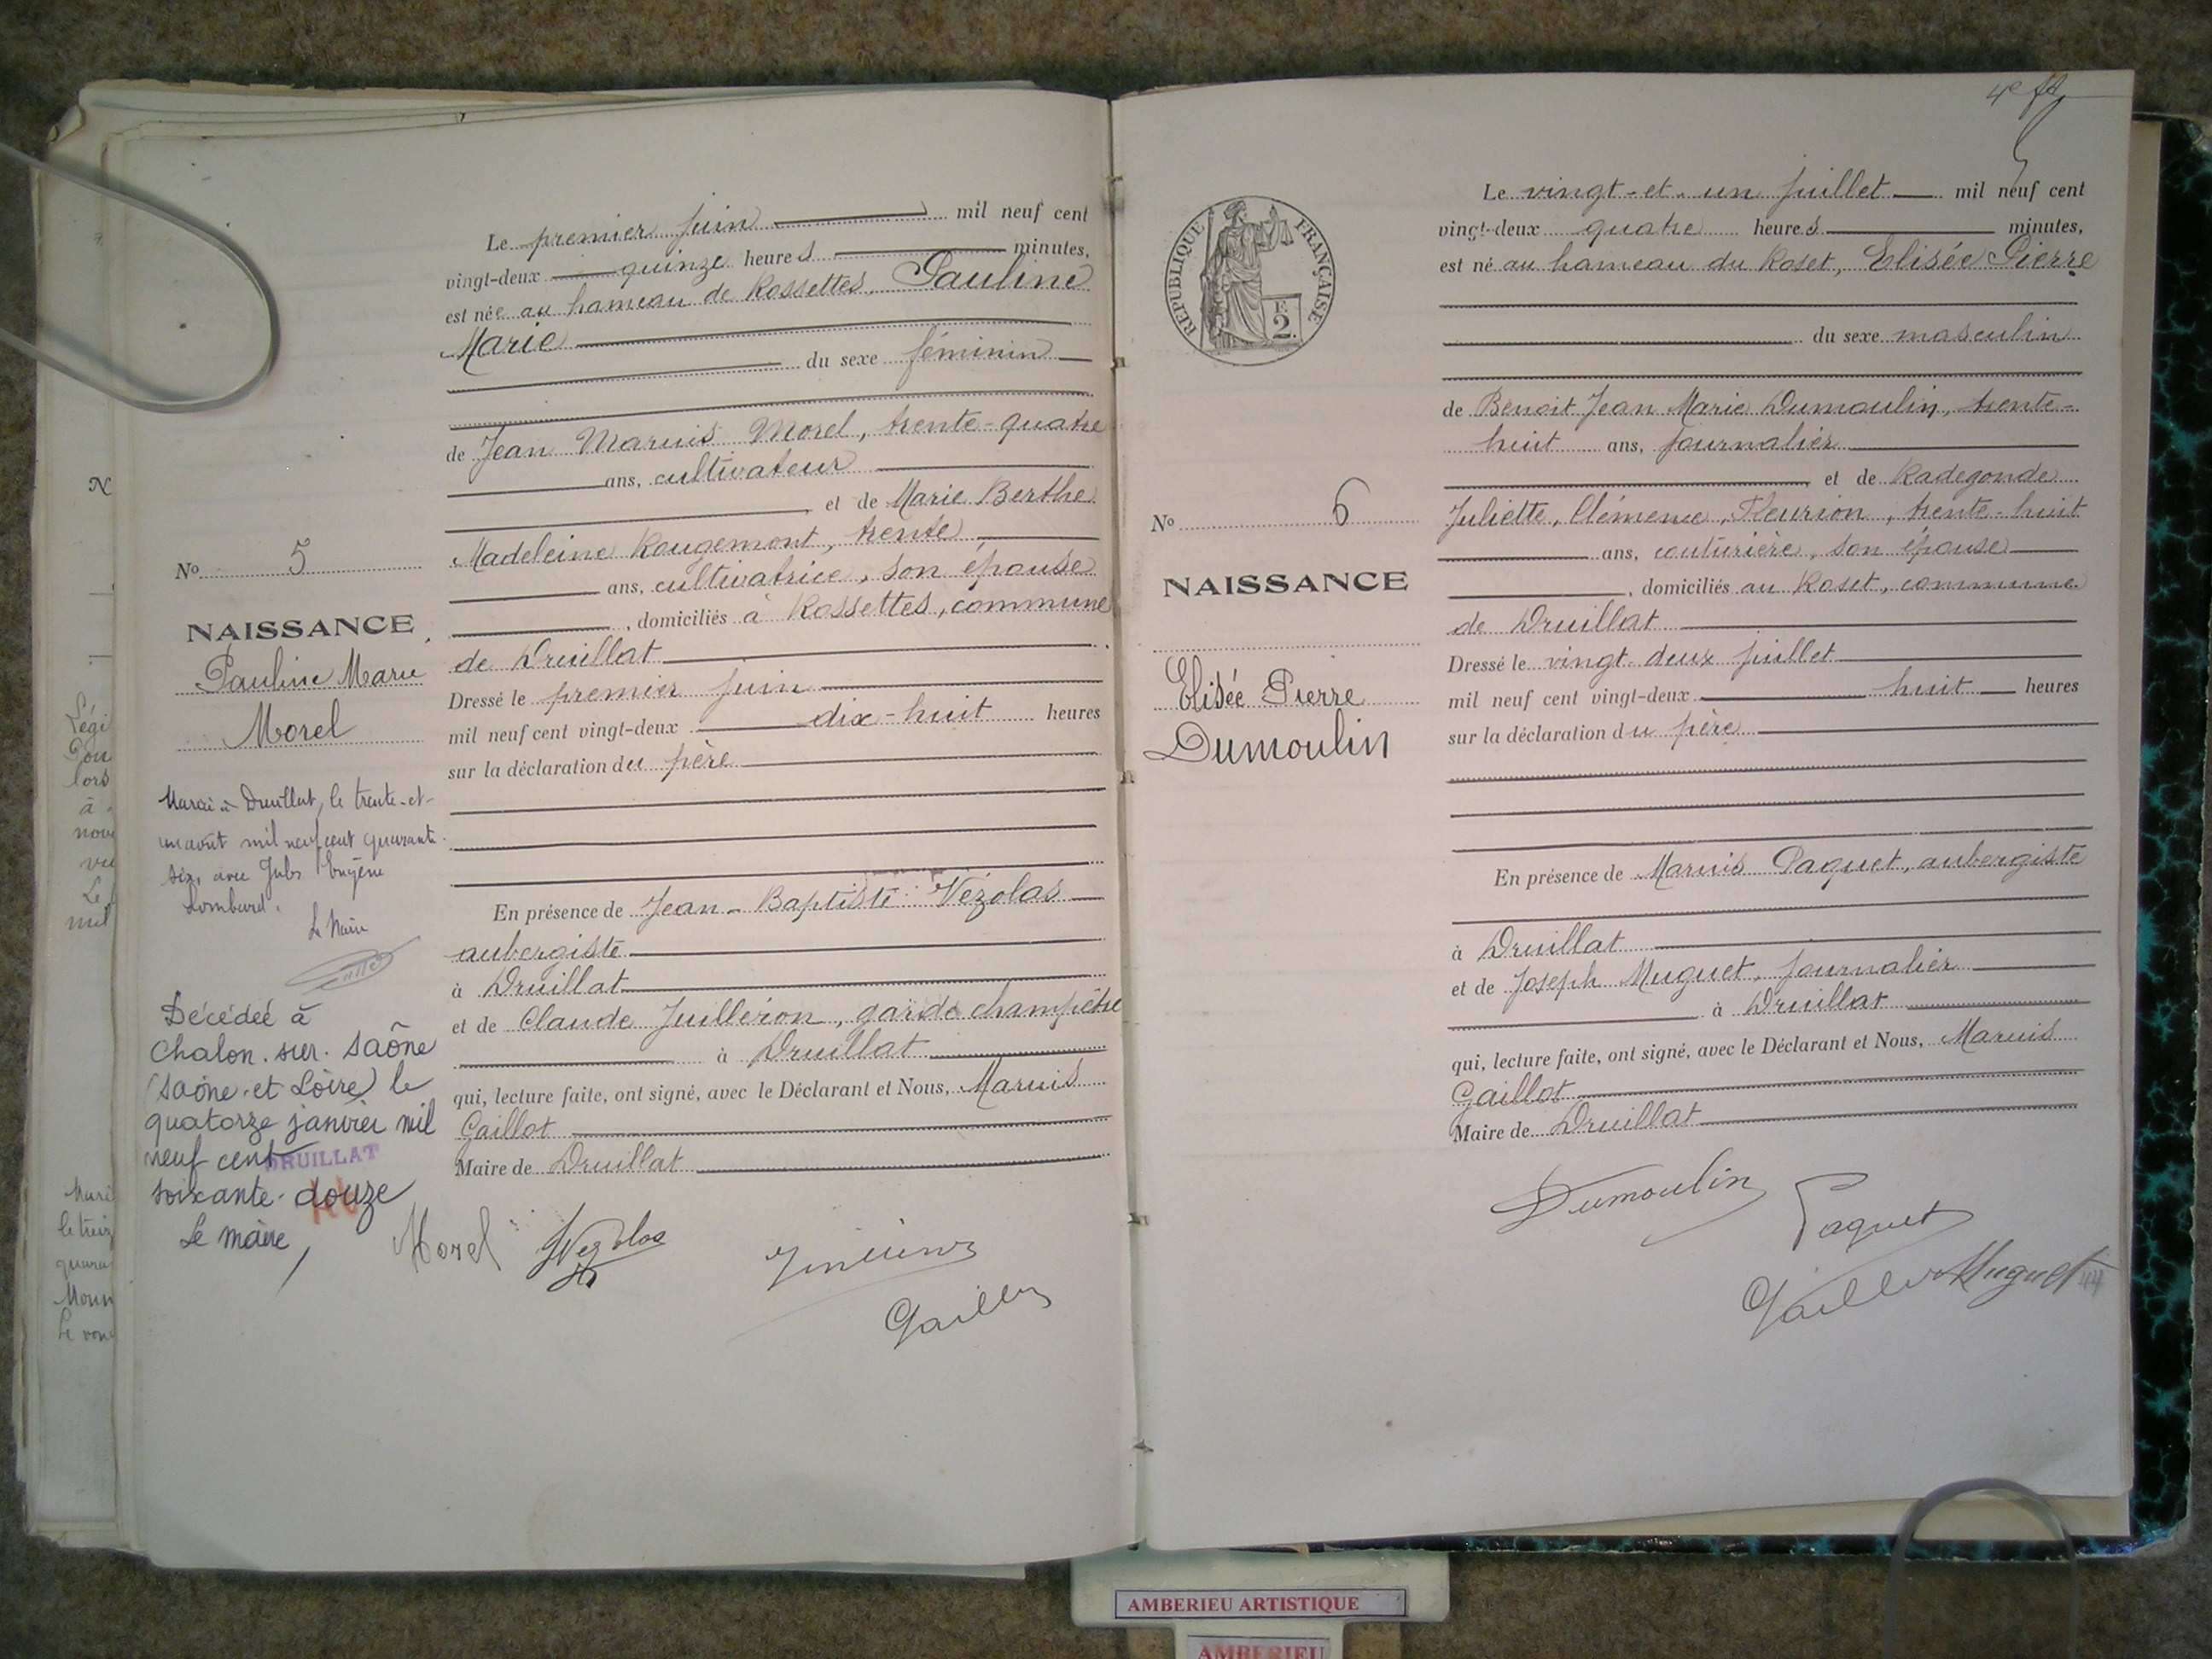 N
Légi
Pou
lors
à
nove
Le
mil
Mari
quara
No 5
NAISSANCE
Pauline Marie
Morel
Mariée à Druillat, le trente-et-
un août mil neuf cent quarante
six, avec Jules Eugène
Lombard.
Le Maire
Décédée à
Chalon-sur-Saône
(Saône-et-Loire) le
quatorze janvier mil
neuf cent
DRUILLAT
soixante-douze
Le maire,
Le premier juin mil neuf cent
vingt-deux quinze heures minutes,
est née au hameau de Rossettes, Pauline
Marie
du sexe féminin
de Jean Marius Morel, trente-quatre
ans, cultivateur
et de Marie Berthe
Madeleine Rougemont, trente
ans, cultivatrice, son épouse
, domiciliés à Rossettes, commune
de Druillat
Dressé le premier juin
mil neuf cent vingt-deux dix-huit heures
sur la déclaration du père
En présence de Jean-Baptiste Vézolas
aubergiste
à Druillat
et de Claude Juilléron, garde champêtre
à Druillat
qui, lecture faite, ont signé, avec le Déclarant et Nous, Marius
Gaillot
Maire de Druillat
Morel Vezolas
Gaillot
RÉPUBLIQUE FRANÇAISE
F.
2
No 6
NAISSANCE
Elisée Pierre
Dumoulin
4e
Le vingt-et-un juillet mil neuf cent
vingt-deux quatre heures minutes,
est né au hameau du Roset, Elisée Pierre
du sexe masculin
de Benoit Jean Marie Dumoulin, trente-
huit ans, journalier
et de Radegonde
Juliette, Clémence, Fleurion, trente-huit
ans, couturière, son épouse
, domiciliés au Roset, commune
de Druillat
Dressé le vingt-deux juillet
mil neuf cent vingt-deux huit heures
sur la déclaration du père
En présence de Marius Paquet, aubergiste
à Druillat
et de Joseph Muguet, journalier
à Druillat
qui, lecture faite, ont signé, avec le Déclarant et Nous, Marius
Gaillot
Maire de Druillat
Dumoulin Paquet
Gaillot Muguet
AMBERIEU ARTISTIQUE
AMBERIEU